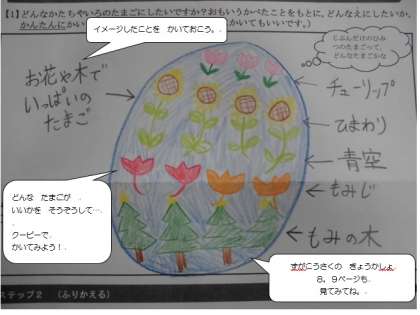 【1】どんなかたちやいろのたまごにしたいですか？おもいうかべたことをもとに、どんなえにしたいか、
かんたんにかい
かいてもいいです。）
イメージしたことを　かいておこう。.
じぶんだけのひみ
つのたまごって、
どんなたまごかな
お花や木で
いっぱいの
たまご
チューリップ
ひまわり
青空
もみじ
もみの木
どんな　たまごが　.
いいかを　そうぞうして….
.
クーピーで.
かいてみよう！.
ずがこうさくの　きょうかしょ.
８，９ページも.
見てみてね。.
ステップ２　（ふりかえる）